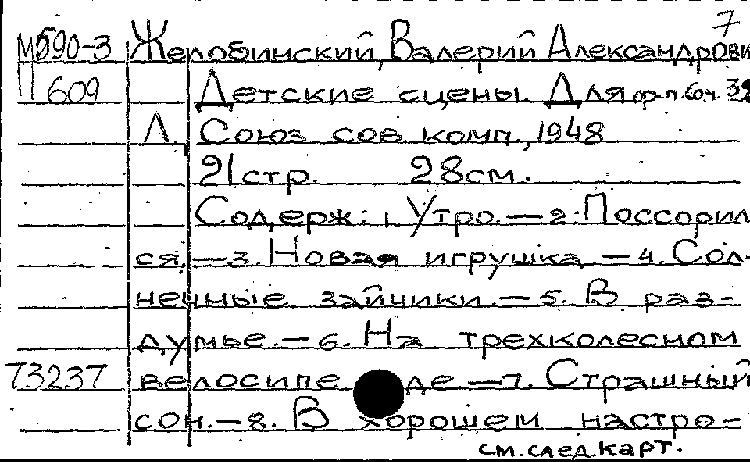 7
М590-3 Желобинский, Валерий Александрови
П 609 Детские сцены. Для ф-п. соч. 39
Л., Союз сов комп., 1948
21 стр. 28 см.
Содерж: 1. Утро. — 2. Поссорил
ся. — 3. Новая игрушка — 4. Сол-
нечные зайчики. — 5. В раз-
думье. — 6. На трехколесном
73237 велосипе де — 7. Страшный
сон. — 8. В хорошем настро-
см. след. карт.